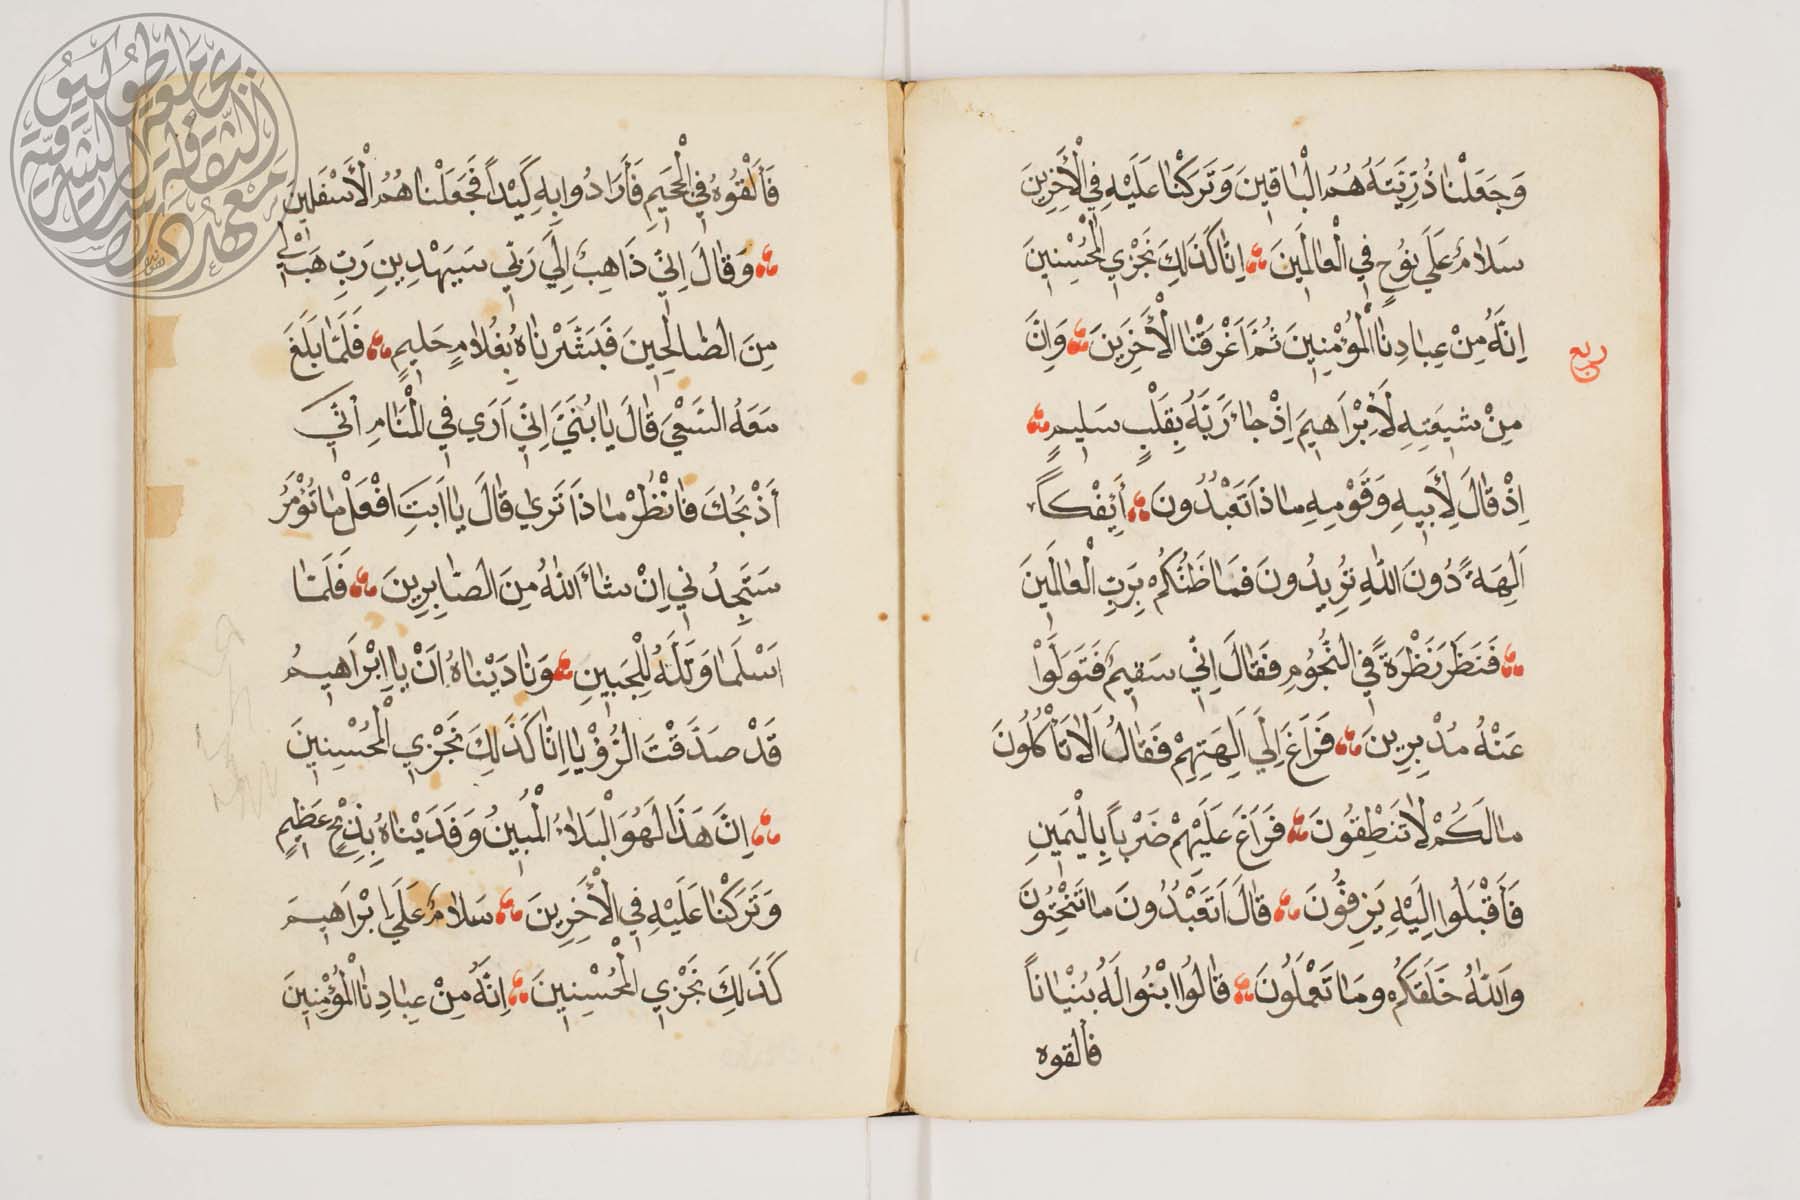 وَجَعَلْنا ذُرِّيَّتَهُ هُمُ الْباقِينَ وَتَرَكْنا عَلَيْهِ فِي الْأَخِرِينَ
سَلامٌ عَلَي نُوحٍ فِي الْعالَمِينَ اِنَّا كَذَلِكَ نَجْزِي الْمُحْسِنِينَ
اِنَّهُ مِنْ عِبادِنا الْمُؤْمِنِينَ ثُمَّ اَغْرَقْنا الْأَخَرِينَ وَاِنَّ
ربع
مِنْ شِيعَتِهِ لَأَبْرَاهِيمَ اِذْ جاءَ رَبَّهُ بِقَلْبٍ سَلِيمٍ
اِذْ قالَ لِأَبِيهِ وَقَوْمِهِ ماذَا تَعْبُدُونَ أَيِفْكاً
اَلِهَةً دُونَ اللهِ تُرِيدُونَ فَما ظَنُّكُمْ بِرَبِّ الْعالَمِينَ
فَنَظَرَ نَظْرَةً فِي النُّجُومِ فَقالَ اِنِّي سَقِيمٌ فَتَوَلَّوْا
عَنْهُ مُدْبِرِينَ فَرَاغَ اِلَي اَلِهَتِهِمْ فَقالُ اَلا تَأْكُلُونَ
مالَكُمْ لا تَنْطِقُونَ فَرَاغَ عَلَيْهِمْ ضَرْباً بِالْيَمِينِ
فَأَقْبَلُوا اِلَيْهِ يَزِفُّونَ قالَ اَتَعْبُدُونَ ما تَنْحِتُونَ
وَاللهُ خَلَقَكُمْ وَما تَعْمَلُونَ قالُوا ابْنُوا لَهُ بُنْياناً
فألقوه
فَأَلْقُوهُ فِي الْجَحِيمِ فَأَرَادُوا بِهِ كَيْداً فَجَعَلْنا هُمُ الْأَسْفَلِينَ
وَقالَ اِنِّي ذَاهِبٌ اِلَي رَبِّي سَيَهْدِينِ رَبِّ هَبْ لِي
مِنَ الصّالِحِينَ فَبَشَّرْناهُ بِغُلامٍ حَلِيمٍ فَلَمَّا بَلَغَ
مَعَهُ السَّعْيَ قالَ يا بُنَيَّ اِنِّي اَرَي فِي الْمَنامِ اَنِّي
أَذْبَحُكَ فانْظُرْ ماذَا تَرَي قالَ يا اَبَتِ افْعَلْ ما تُؤْمَرُ
سَتَجِدُنِي اِنْ شاءَ اللهُ مِنَ الصّابِرِينَ فَلَمَّا
اَسْلَما وَتَلَّهُ لِلْجَبِينِ وَنادَيْناهُ اَنْ يا اِبْرَاهِيمُ
قَدْ صَدَّقْتَ الرُّؤْيا اِنّا كَذَلِكَ نَجْزِي الْمُحْسِنِينَ
اِنَّ هَذَا لَهُوَ الْبَلاءُ الْمُبِينُ وَفَدَيْناهُ بِذِبْحٍ عَظِيمٍ
وَتَرَكْنا عَلَيْهِ فِي الْأَخِرِينَ سَلامٌ عَلَي اِبْرَاهِيمَ
كَذَلِكَ نَجْزِي الْمُحْسِنِينَ اِنَّهُ مِنْ عِبادِنا الْمُؤْمِنِينَ